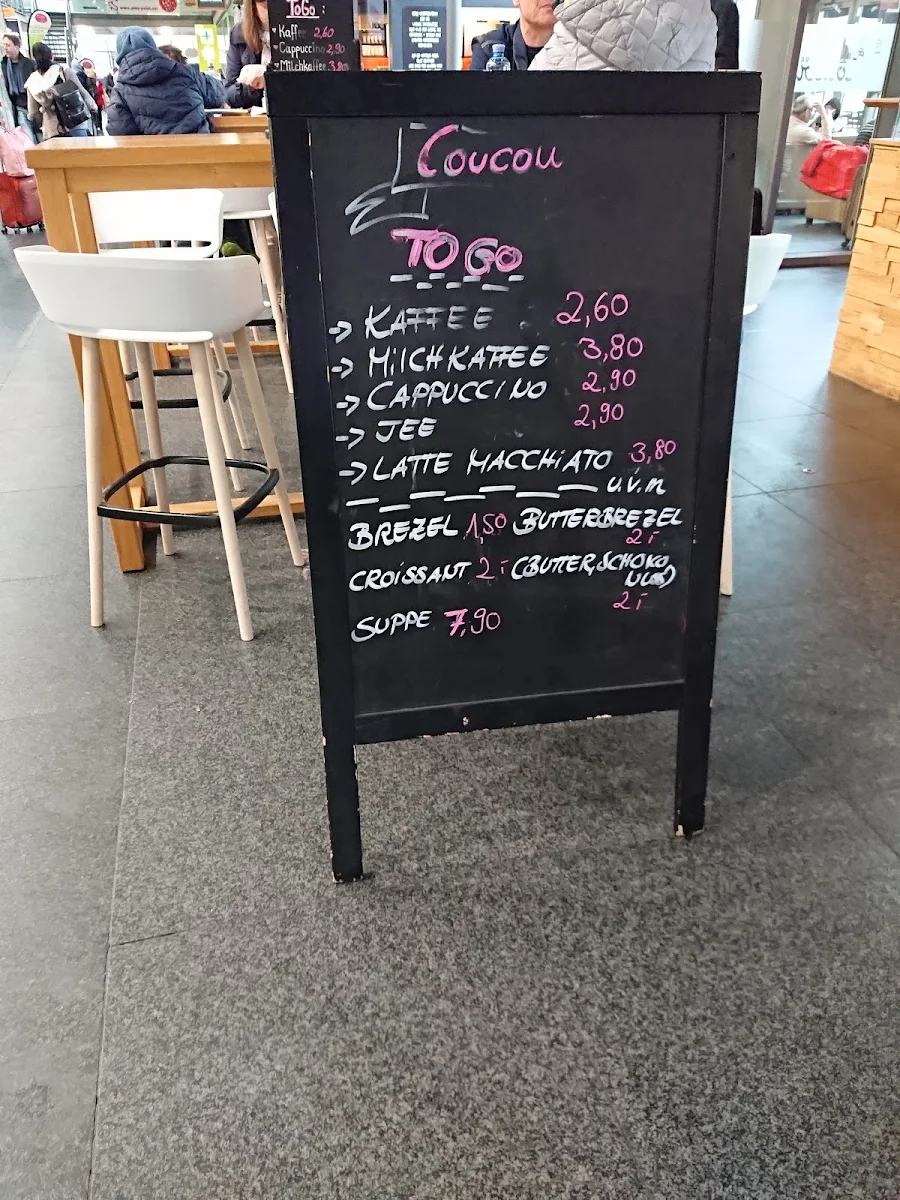 ToGo:
Kaffee 2,60
Cappuccino 2,90
Milchkaffee 3,80
Coucou
TO GO
-> KAFFEE 2,60
-> MILCHKAFFEE 3,80
-> CAPPUCCINO 2,90
-> JEE 2,90
-> LATTE MACCHIATO 3,80
u.v.m
BREZEL 1,50 BUTTERBREZEL
2,-
CROISSANT 2,- (BUTTER, SCHOKO,
NUSS)
2,-
SUPPE 7,90